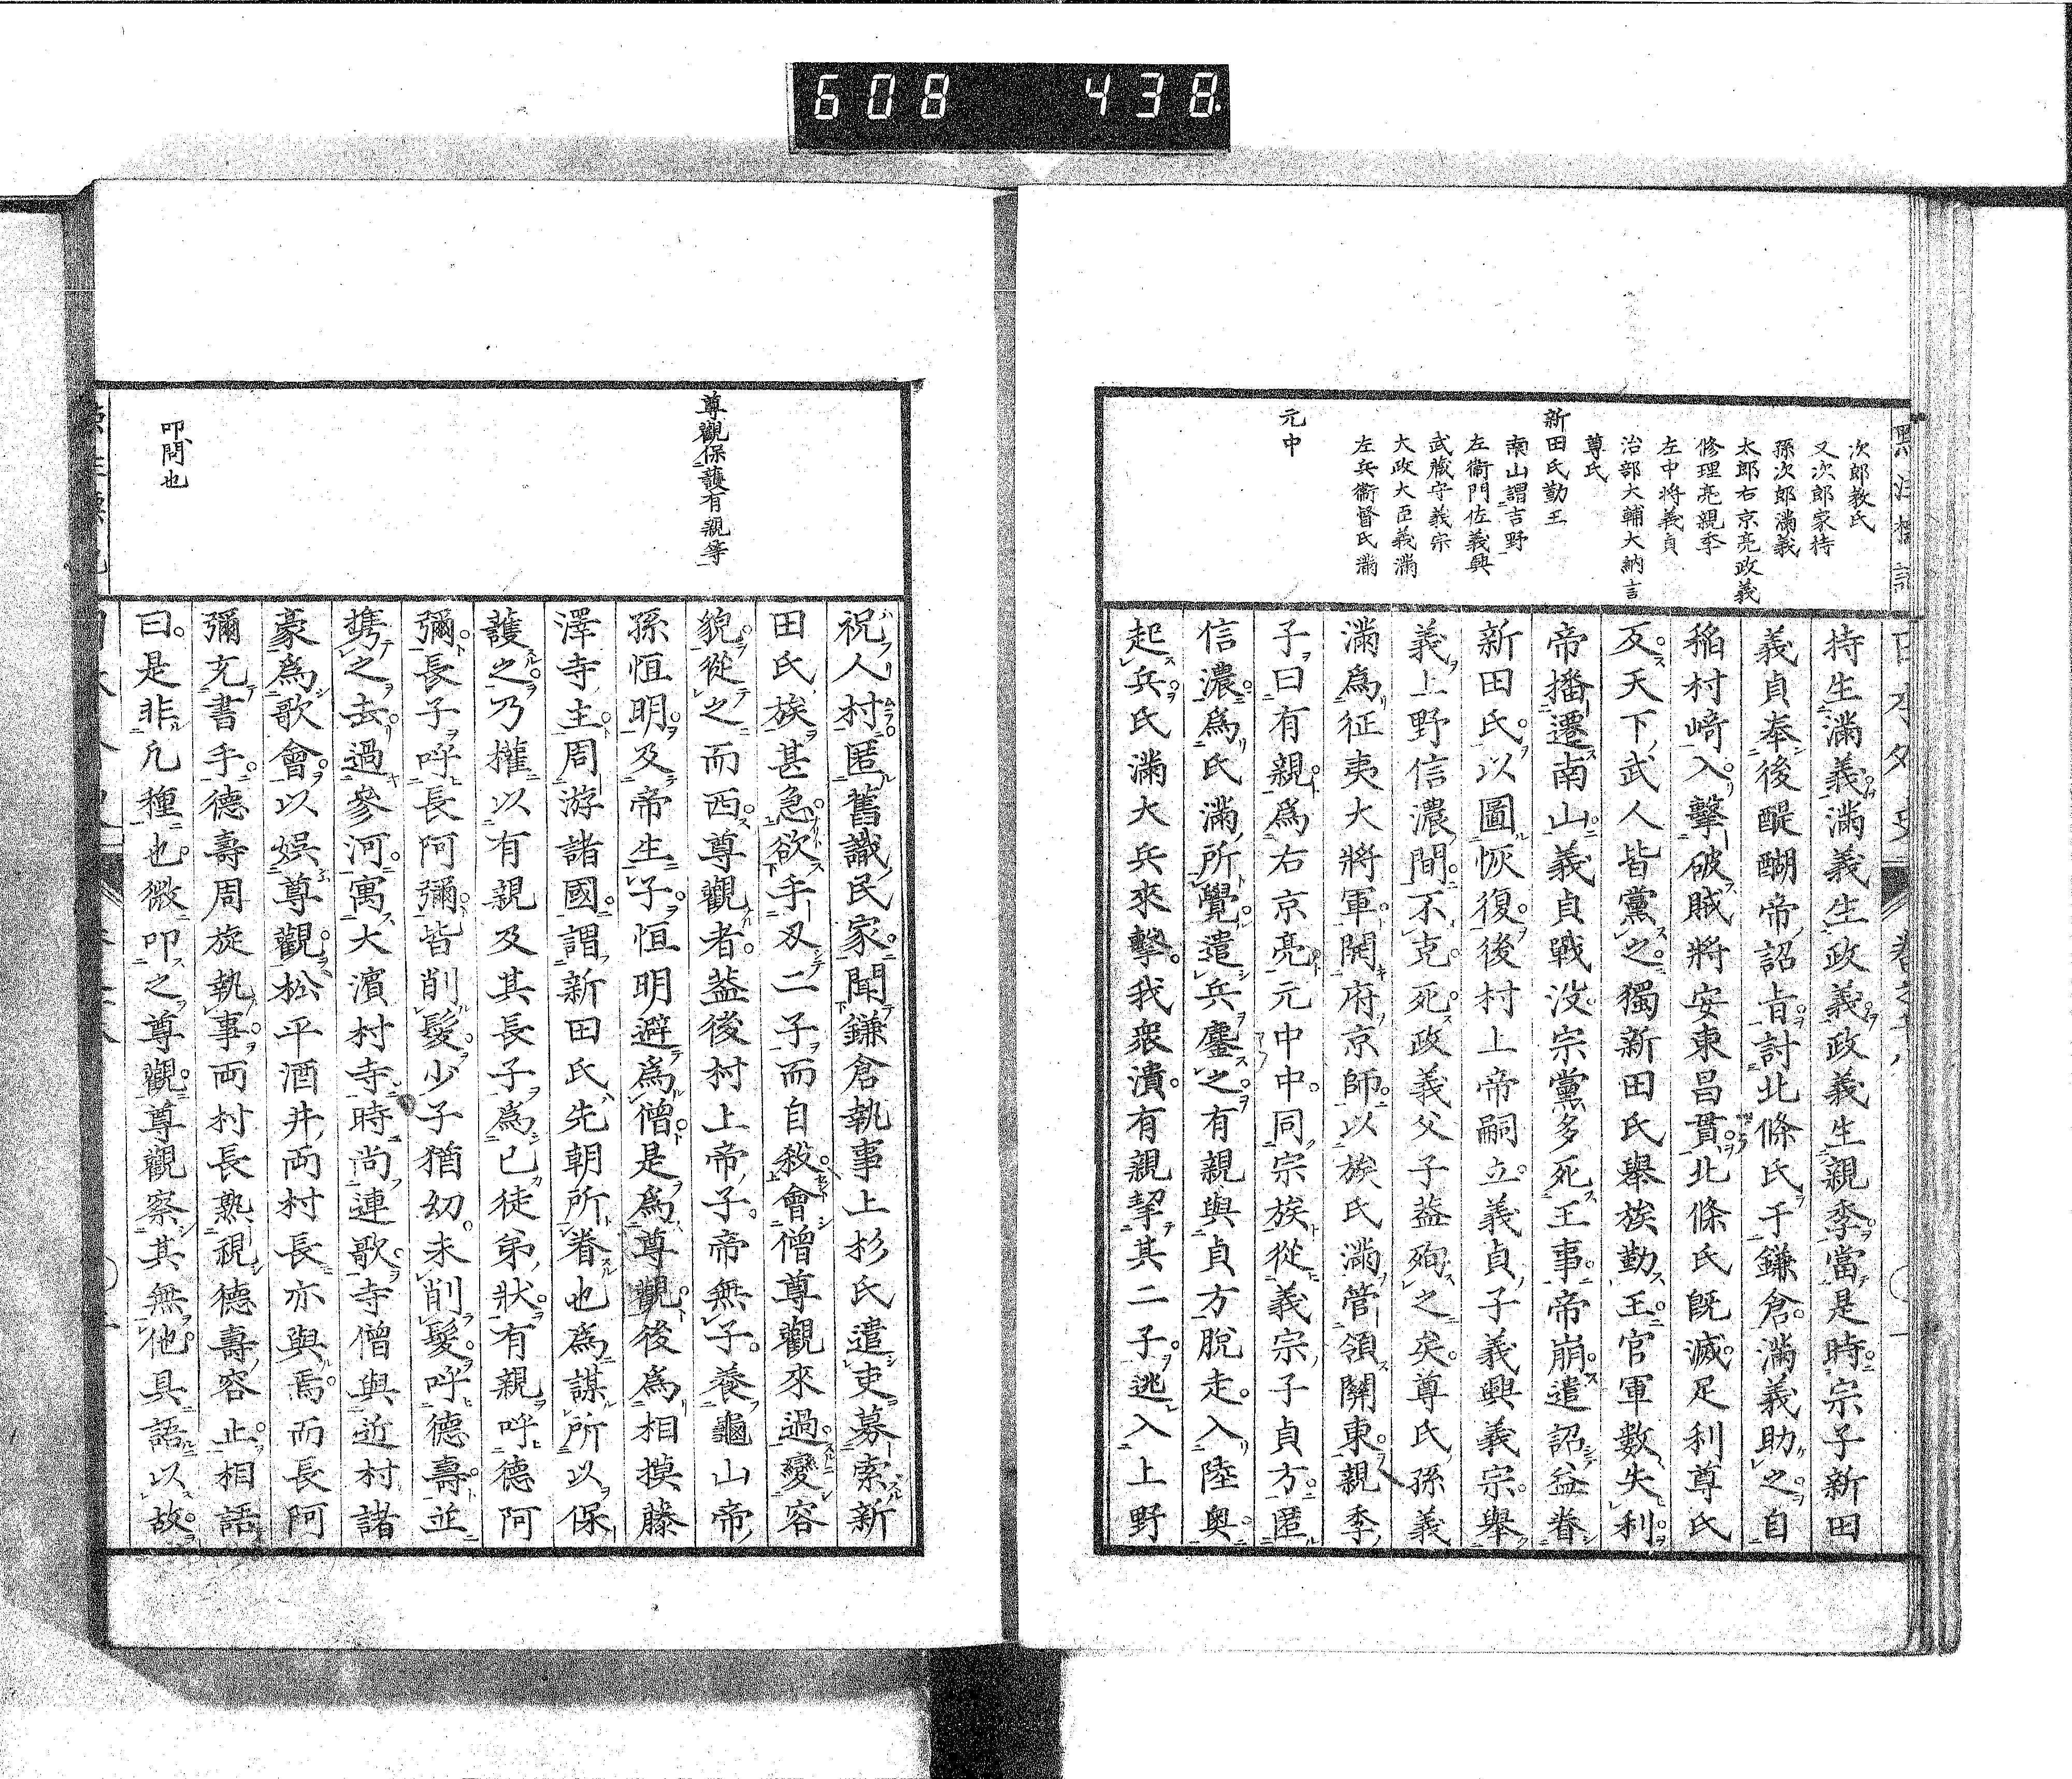 608 438
次郎教氏
又次郎家持
孫次郎滿義
太郎右京亮政義
修理亮親季
左中將義貞
治部大輔大納言
尊氏
新田氏勤王
南山謂吉野
左衞門佐義興
武藏守義宗
大政大臣義滿
左兵衞督氏滿
元中
持生滿義滿義生政義政義生親季當是時宗子新田
義貞奉後醍醐帝詔旨討北條氏于鎌倉滿義助之自
稲村﨑入擊破賊將安東昌賈北條氏既滅足利尊氏
反天下武人皆黨之獨新田氏舉族勤王官軍數失利
帝播遷南山義貞戰沒宗黨多死王事帝崩遣詔益眷
新田氏以圖恢復後村上帝嗣立義貞子義興義宗舉
義上野信濃間不克死政義父子益殉之矣尊氏孫義
滿爲征夷大將軍開府京師以族氏滿管領關東親季
子曰有親爲右京亮元中中同宗族從義宗子貞方匿
信濃爲氏滿所覺遣兵鏖之有親與貞方脫走入陸奧
起兵氏滿大兵來擊我衆潰有親挈其二子逃入上野
尊觀保護有親等
叩問也
祝人村匿舊識民家聞鎌倉執事上杉氏遣吏募索新
田氏族甚急欲手刃二子而自殺會僧尊觀來過變容
貌從之而西尊觀者蓋後村上帝子帝無子養龜山帝
孫恒明及帝生子恒明避爲僧是爲尊觀後爲相摸藤
澤寺主周游諸國謂新田氏先朝所眷也爲謀所以保
護之乃權以有親及其長子爲已徒弟狀有親呼德阿
彌長子呼長阿彌皆削髮少子猶幼未削髮呼德壽並
携之去過參河寓大濱村寺時尚連歌寺僧與近村諸
豪爲歌會以娯尊觀松平酒井兩村長亦與焉而長阿
彌充書手德壽周旋執事兩村長熟視德壽容止相語
曰是非凡種也微叩之尊觀尊觀察其無他具語以故